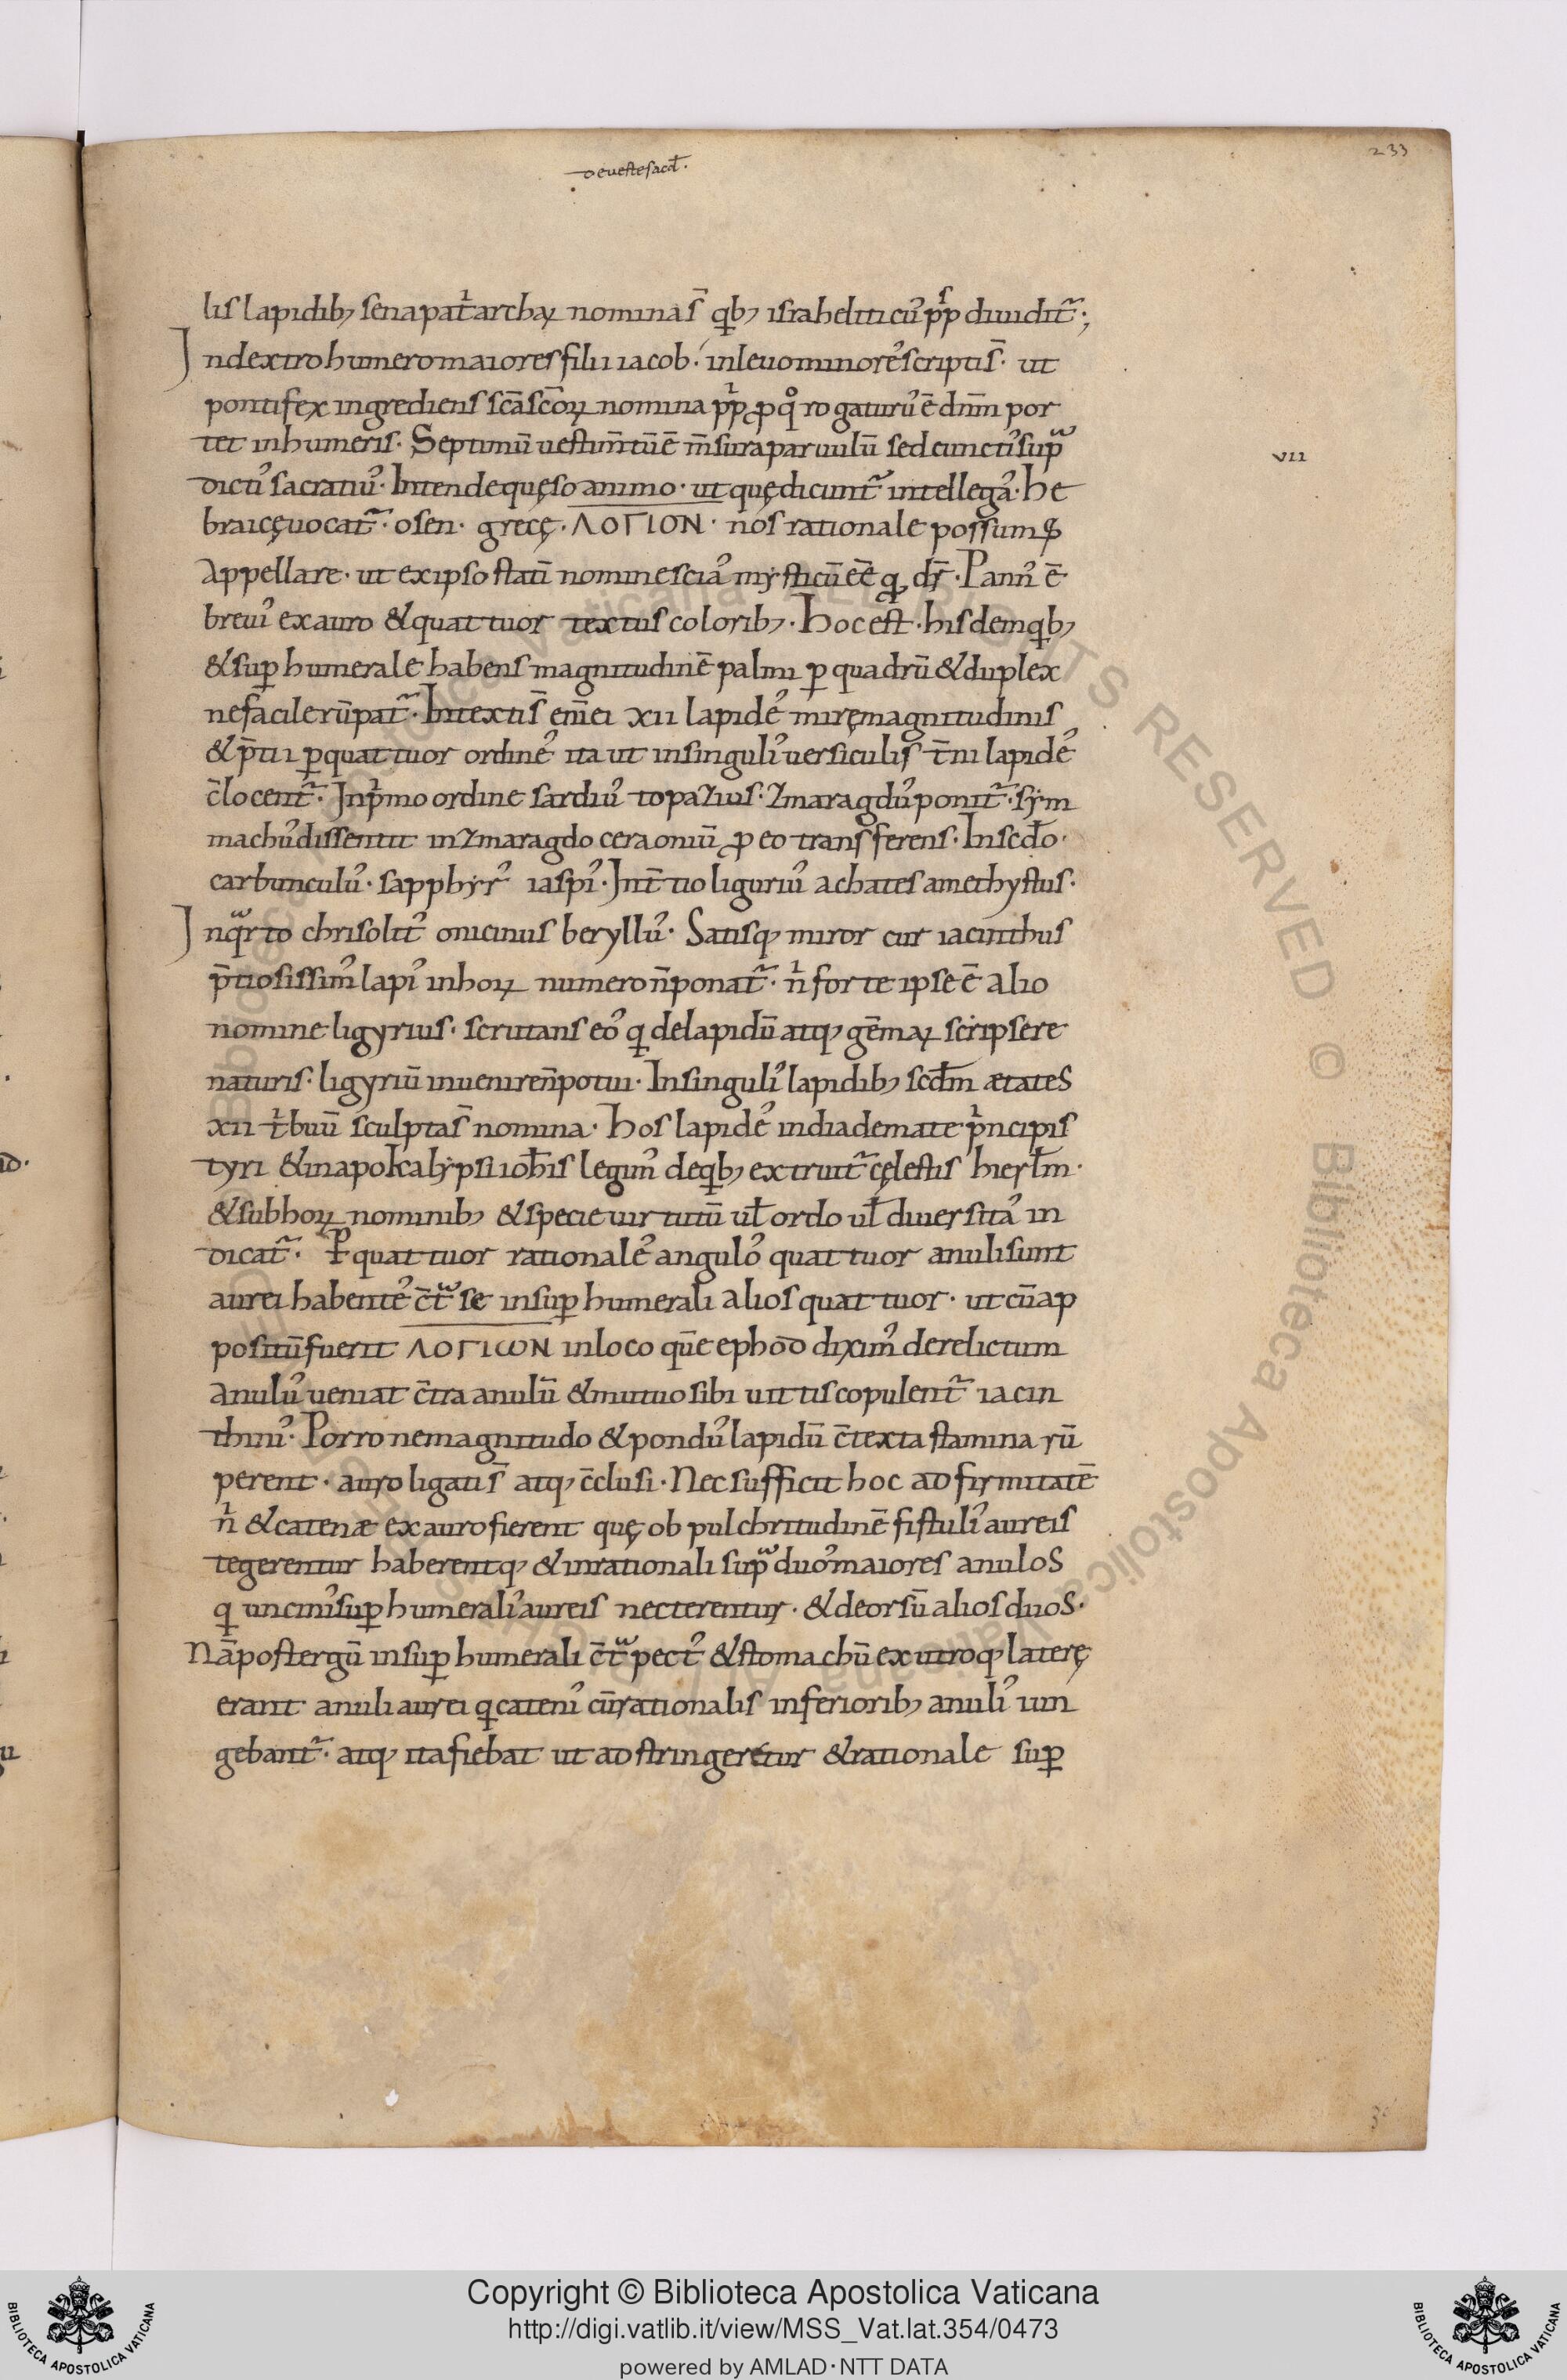 233
de ueste sacd̄.
lis lapidib; sena pat̄archaꝝ nomina s̄ qb; israheliticꝰ pp̄s diuidit᷑.,
In dextro humero maiores filii iacob. in leuo minorēs scripti s̄. ut
pontifex ingrediens sc̄a sc̄oꝝ nomina pp̄ ꝓ qͦ rogaturꝰ ē dn̄m por
tet in humeris. Septimū uestim̄tū ē m̄sura paruulū sed cunctiꝰ sup̄
dictiꝰ sacratiꝰ. Intende quęso animo. ut quę dicunt᷑ intellegaꝰ. he
braicę uocat᷑. osen. grecę. ΛΟΓΙΟΝ. nos rationale possumꝰ
Appellare. ut ex ipso statī nomine sciaꝰ mẏsticū eē qđ dr̄. Pannꝰ ē
breuiꝰ ex auro & quattuor textus colorib;. Hoc est. hisdem qb;
& suꝑhumerale habens magnitudinē palmi ꝑ quadrū & duplex
ne facile rūpat᷑. Intexti s̄ eni ei xii lapideꝰ mirę magnitudinis
& p̄tii ꝑ quattuor ordineꝰ ita ut in singuliꝰ uersiculis t̄ni lapideꝰ
c̄locent᷑. In pͥmo ordine sardiuꝰ topazius. zmaragduꝰ ponit᷑. sẏm
machuꝰ dissentit in zmaragdo ceraoniū ꝓ eo transferens. In sedo.
carbunculuꝰ. sapphyrꝰ iaspiꝰ. In t̄tio liguriuꝰ achates amethystus.
In qᷓrto chrisolitꝰ onicinus berylluꝰ. Satisq; miror cur iacinthus
p̄tiosissimꝰ lapiꝰ in hoꝝ numero n̄ ponat᷑. nͥ forte ipse ē alio
nomine ligyrius. scrutans eoꝰ q de lapidū atq; gēmaꝝ scripsere
naturis. ligyriū inuenire n̄ potui. In singuliꝰ lapidib; scdm̄ ætates
xii tͥbuū sculpta s̄ nomina. Hos lapideꝰ in diademate pͥncipis
tyri & in apokalẏpsi ioh̄is legimꝰ de qb; extruit᷑ cęlestis hierl̄m.
& sub hoꝝ nominib; & specie uirtutū ul̄ ordo ul̄ diuersitaꝰ in
dicat᷑. Ꝑ quattuor rationaleꝰ anguloꝰ quattuor anuli sunt
aurei habenteꝰ c̄tᷓ se in suꝑhumerali alios quattuor. ut cū ap
positū fuerit ΛΟΓΙωΝ in loco quē ephod diximꝰ derelictum
anuluꝰ ueniat c̄tra anulū & mutuo sibi uittis copulent᷑ iacin
thiniꝰ. Porro ne magnitudo & ponduꝰ lapidū c̄texta stamina rū
perent. auro ligati s̄ atq; c̄clusi. Nec sufficit hoc ad firmitatē
nͥ & catenæ ex auro fierent quę ob pulchritudinē fistuliꝰ aureis
tegerentur haberentq; & in rationali supᷓ duoꝰ maiores anulos
q unciniꝰ suꝑhumeraliꝰ aureis necterentur. & deorsū alios duos.
Nā post ergū in suꝑhumerali c̄tᷓ pectꝰ & stomachū ex utroq; laterę
erant anuli aurei q cateniꝰ cū rationalis inferiorib; anuliꝰ iun
gebant᷑. atq; ita fiebat ut adstringeretur & rationale suꝑ
vii
Copyright © Biblioteca Apostolica Vaticana
http://digi.vatlib.it/view/MSS_Vat.lat.354/0473
powered by AMLAD·NTT DATA
BIBLIOTECA APOSTOLICA VATICANA
BIBLIOTECA APOSTOLICA VATICANA